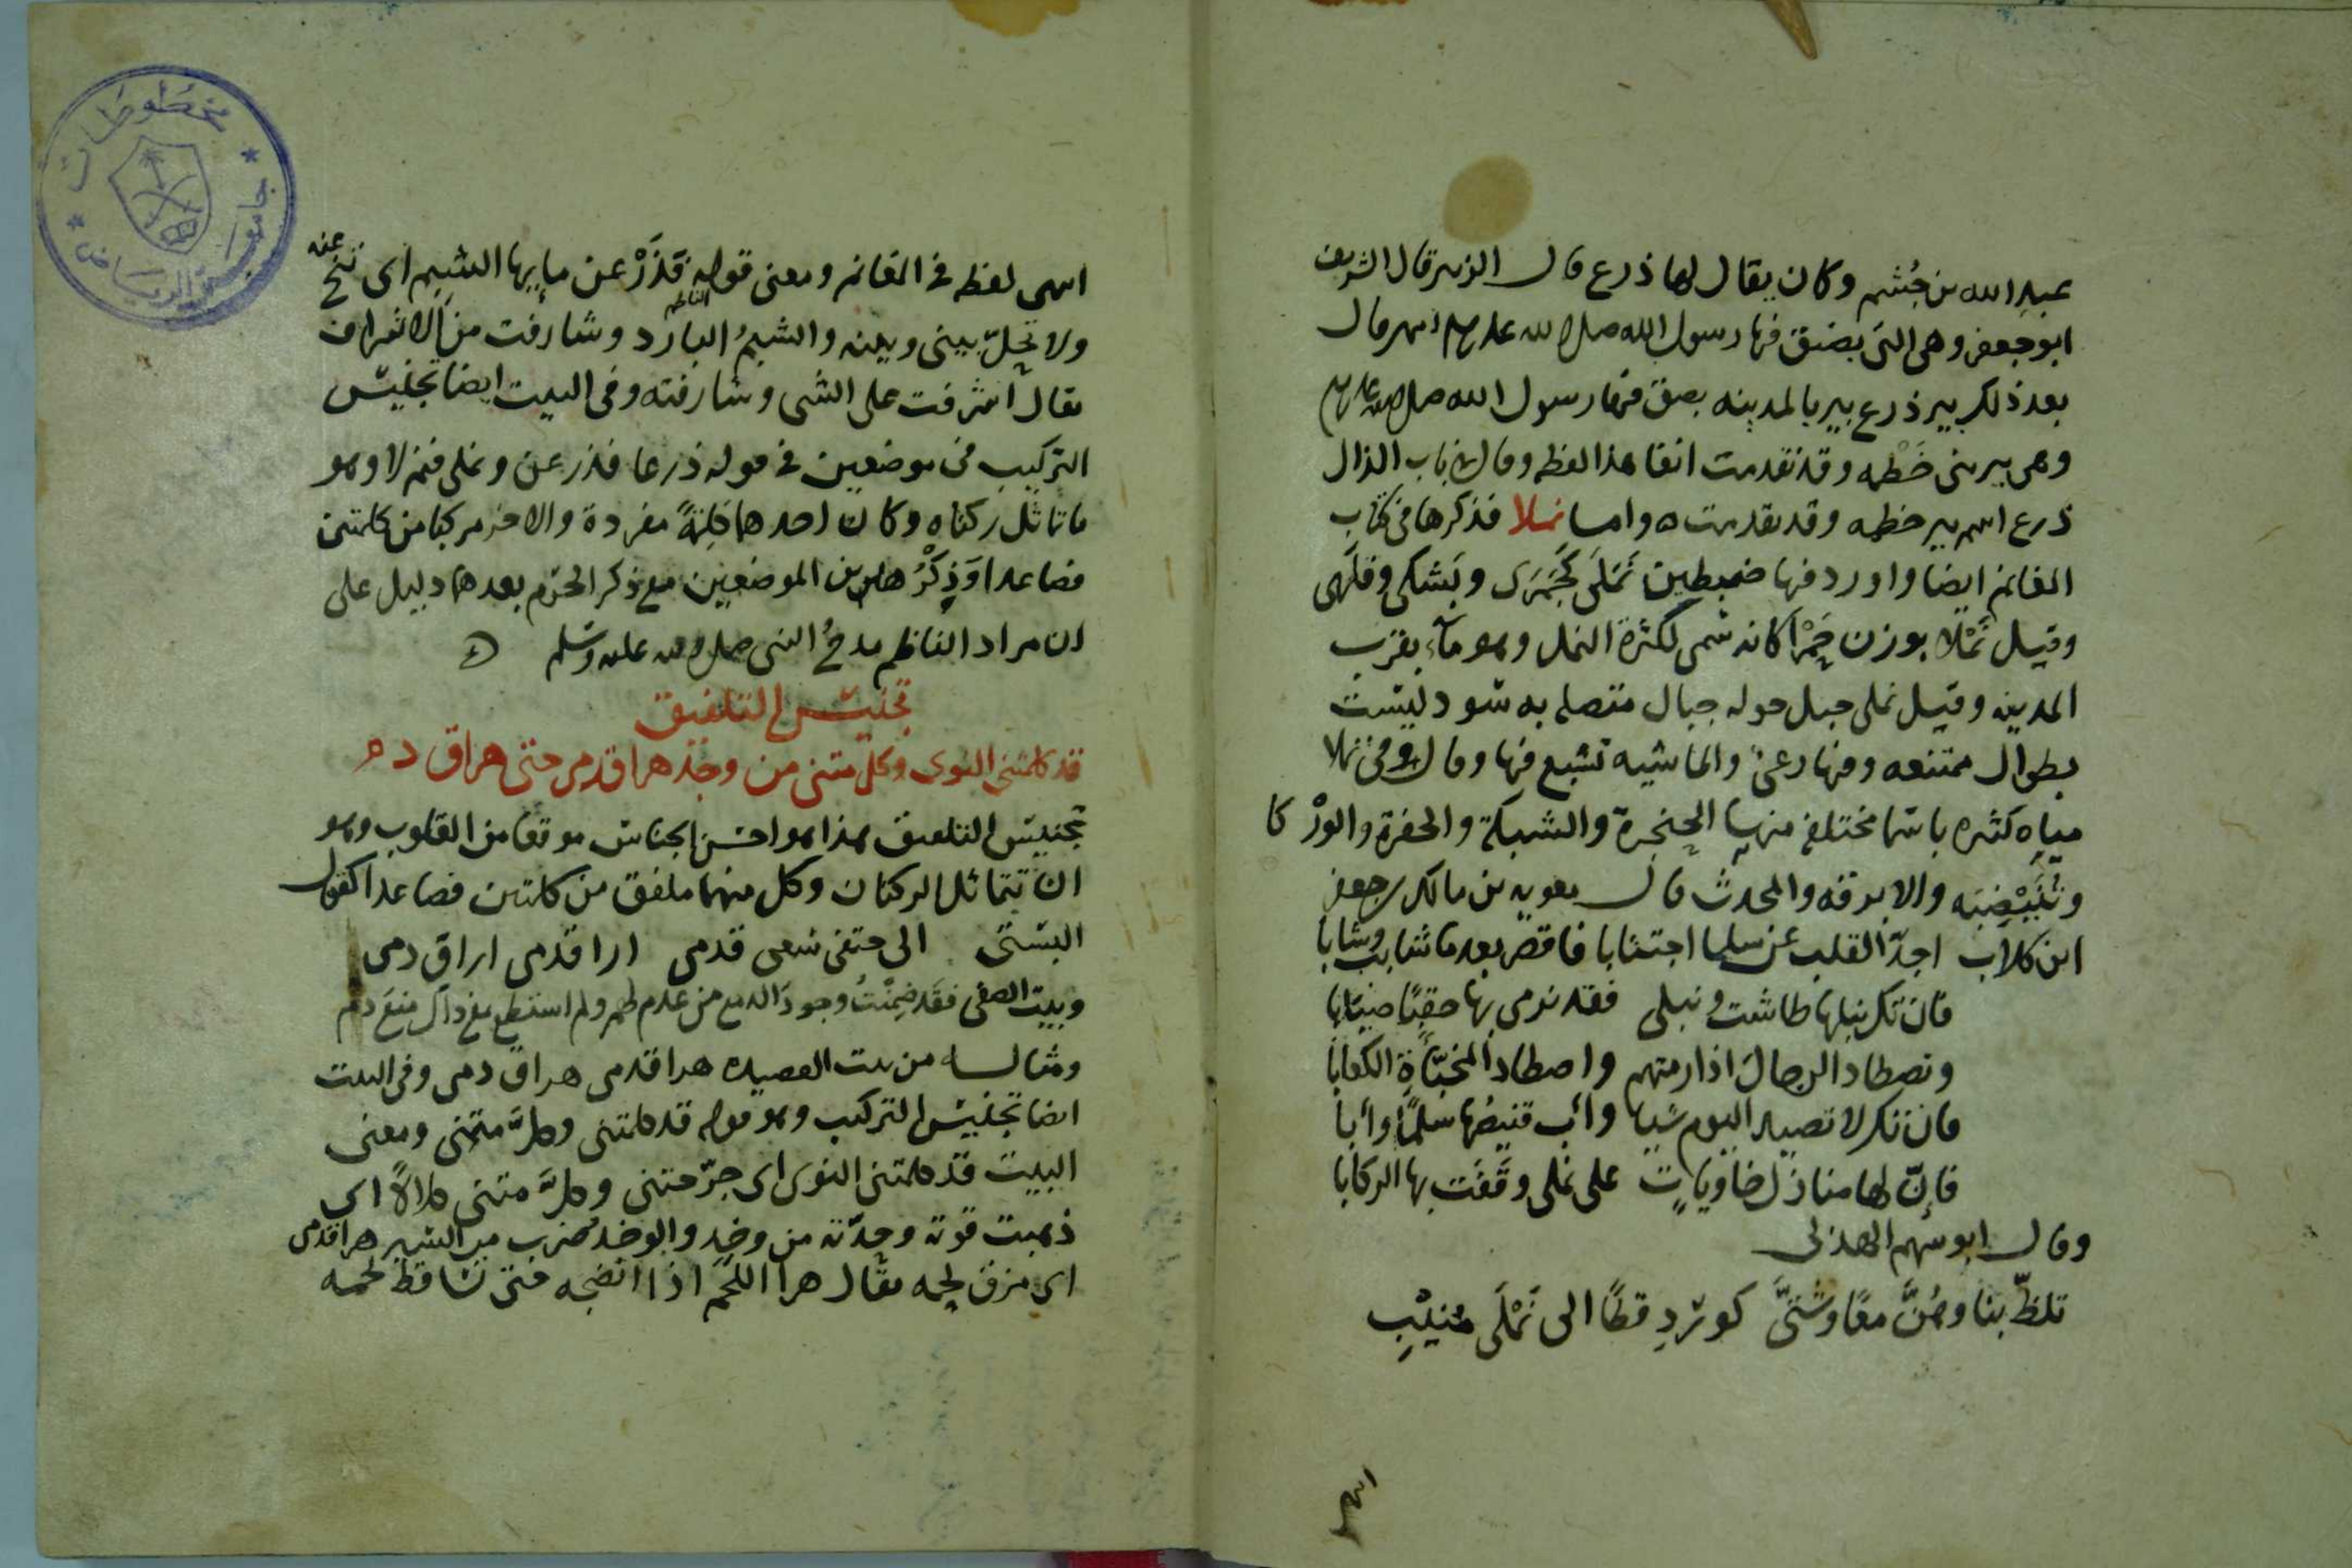 عبد الله بن جُشم وكان يقال لها ذرع قال الزبير قال الشريف
ابو جعفر وهى التى بصق فيها رسول الله صلى الله عليه وسلم انتهى وقال
بعد ذلك بير ذرع بير بالمدينه بصق فيها رسول الله صلى الله عليه وسلم
وهى بير بنى خَطْمه وقد تقدمت انفا هذا لفظه وقال فى باب الذال
ذرع اسم بير خطمه وقد تقدمت واما نملا فذكرها فى كتاب
المغانم ايضا واورد فيها ضبطين نَمَلَى كَجَمَزَى وبَشَكى وقلَهى
وقيل نَمْلا بوزن حَمْرا كانه سُمى لكثرة النمل وهو ماء بقرب
المدينه وقيل نملى جبل حوله جبال متصله به سود ليست
بطوال ممتنعه وفيها رعى والماشيه تشبع فيها وقال وفى نملا
مياه كثيره باسما مختلفه منها الحنجرة والشبكة والحفرة والودْكا
وتُنَيْضِبَه والابرقه والمحدث قال معويه بن مالك بن جعفر
ابن كلاب اجدّ القلب عن سلما اجتنابا فاقصر بعد ما شابت وشابا
فان تك نبلها طاشت ونبلى فقد نرمى بها حقبًا صيابا
وتصطاد الرجال اذا رمتهم واصطاد المخبّاةَ الكعابا
فان تك لا تصيد اليوم شيا وآب قنيصُها سلمًا وآبا
فاِنّ لها منازل خاوياتٍ على نملى وقَفَت بها الركابا
وقال ابو سهم الهذلى
تلظّ بنا وهُنَّ معًا وشَتَّى كورْدِ قطًا الى نَمَلَى مُنيْبِ
انتهى
انتهى لفظه فى المغانم ومعنى قوله فَذَرْ عن مابها الشبم اى تنحّ عنه
الناظم
ولا تحلّ بينى وبينه والشبمُ البارد وشارفت من الاشراف
يقال اشرفت على الشى وشارفته وفى البيت ايضا تجنيس
التركيب فى موضعين فى قوله ذرعا فذر عن ونملى فنم لا وهو
ما تماثل ركناه وكان احدهما كلمةً مفردة والاخر مركبا من كلمتين
فصاعدا وَذِكْرُ هاذين الموضعين مع ذكر الحرم بعدهما دليل على
ان مراد الناظم مدحُ النبى صلى الله عليه وسلم
تجنيس التلفيق
قد كلمتنى النوى وكل متنى من وخد هرا قدمى حتى هراق دم
تجنيس التلفيق هذا هو احسن الجناس موقعا من القلوب وهو
ان تتماثل الركنان وكل منهما ملفق من كلمتين فصاعدا كقول
البستى الى حتفى سعى قدمى ارا قدمى اراق دمى
وبيت الصفى فقد ضمنْتُ وجود الدمع من عدم لهم ولم استطع مع ذاك منعَ دم
ومثاله من بيت القصيده هرا قدمى هراق دمى وفى البيت
ايضا تجنيس التركيب وهو قوله قد كلمتنى وكلّ متنى ومعنى
البيت قد كلمتنى النوى اى جرّحتنى وكلَّ متنى كلالًا اى
ذهبت قوته وحدّته من وخد والوخد ضرب من السير هرا قدمى
اى مزق لحمه يقال هرا اللحم اذا انضجه حتى تساقط لحمه
مخطوطات
جامعة الرياض